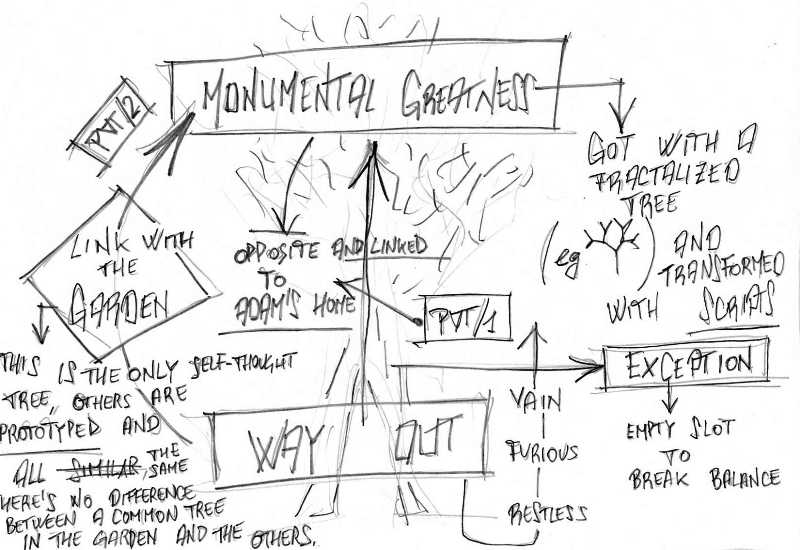 MONUMENTAL GREATNESS
PVT/2
GOT WITH A
FRACTALIZED
TREE
(eg
)
AND
TRANSFORMED
WITH SCRIPTS
LINK WITH
THE
GARDEN
OPPOSITE AND LINKED
TO
ADAM'S HOME
PVT/1
THIS IS THE ONLY SELF-THOUGHT
TREE, OTHERS ARE
PROTOTYPED AND
ALL SIMILAR, THE
SAME
HERE'S NO DIFFERENCE
BETWEEN A COMMON TREE
IN THE GARDEN AND THE OTHERS.
WAY OUT
VAIN
FURIOUS
RESTLESS
EXCEPTION
EMPTY SLOT
TO
BREAK BALANCE